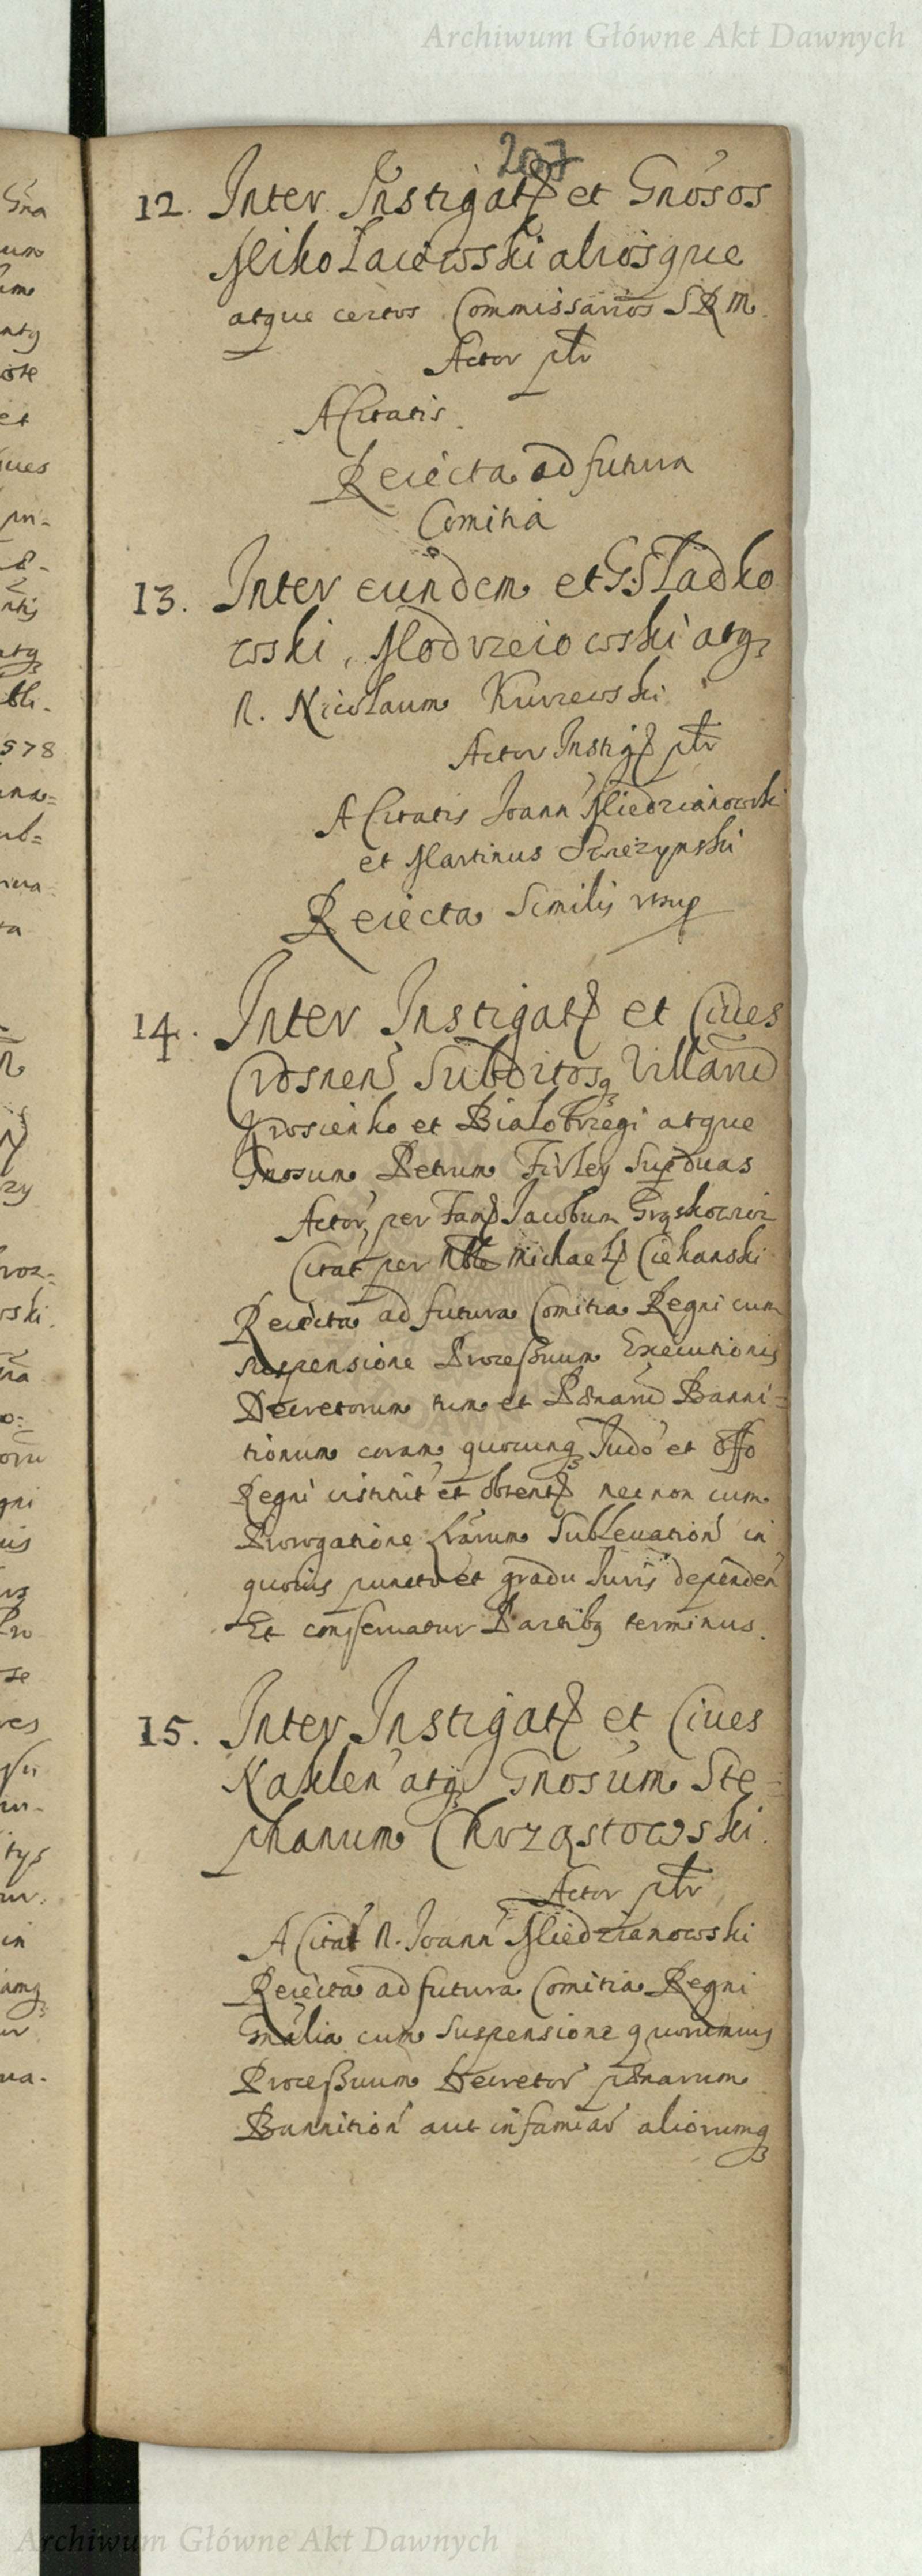 Archiwum Główne Akt Dawnych
207
12. Inter Instigat et Gnosos
Mikołaiewski aliosque
atque certos Commissarios S R M.
Actor ptr
A Citatis.
Reiecta ad futura
Comitia
13. Inter eundem et G: Sładko
wski, Modrzeiowski atq
N. Nicolaum Kurzewski
Actor Instig ptr
A Citatis Joann Miedzianowski
et Martinus
Reiecta similis
14. Inter Instigat et Ciues
Crosnen Subditosq Villaru
Krosienko et Białobrzegi atque
Gnosum Petrum Firley Sup duas
Actor per Fam Jacobum Grąskowicz
Citat per Nble Michael Ciekanski
Reiecta ad futura Comitia Regni cum
suspensione Processuum Executionis
Decretorum tum et Pönaru Banni=
tionum coram quocunq Judo et offo
Regni institut et obtent nec non cum
Prorogatione Lrarum Subleuation in
quouis puncto et gradu Juris dependen
Et conseruatur Partibq terminus.
15. Inter Instigat et Ciues
Naklen atq Gnosum Ste=
phanum Chrząstowski.
Actor ptr
A Citat N. Joann Miedzianowski
Reiecta ad futura Comitia Regni
Gnalia cum suspensione quorumuis
Processuum Decretor pönarum
Bannition aut infamiar aliorumq
Archiwum Główne Akt Dawnych